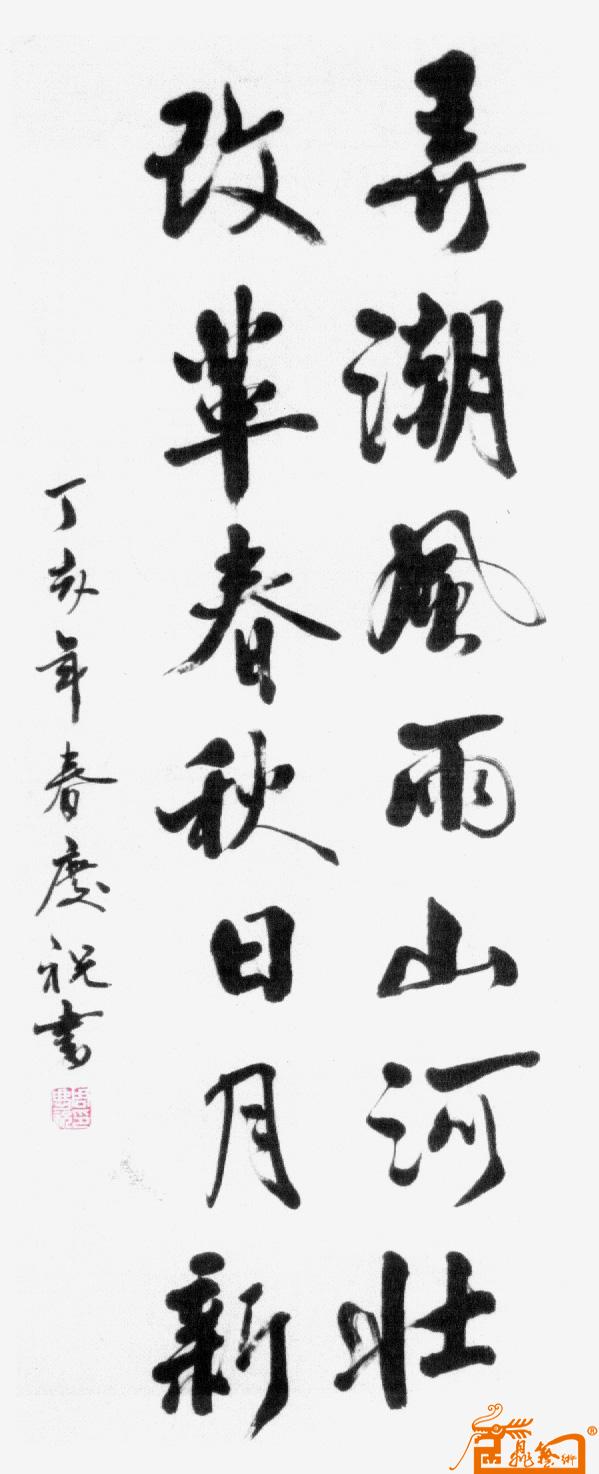 弄潮風雨山河壮
改革春秋日月新
丁亥年春慶祝書